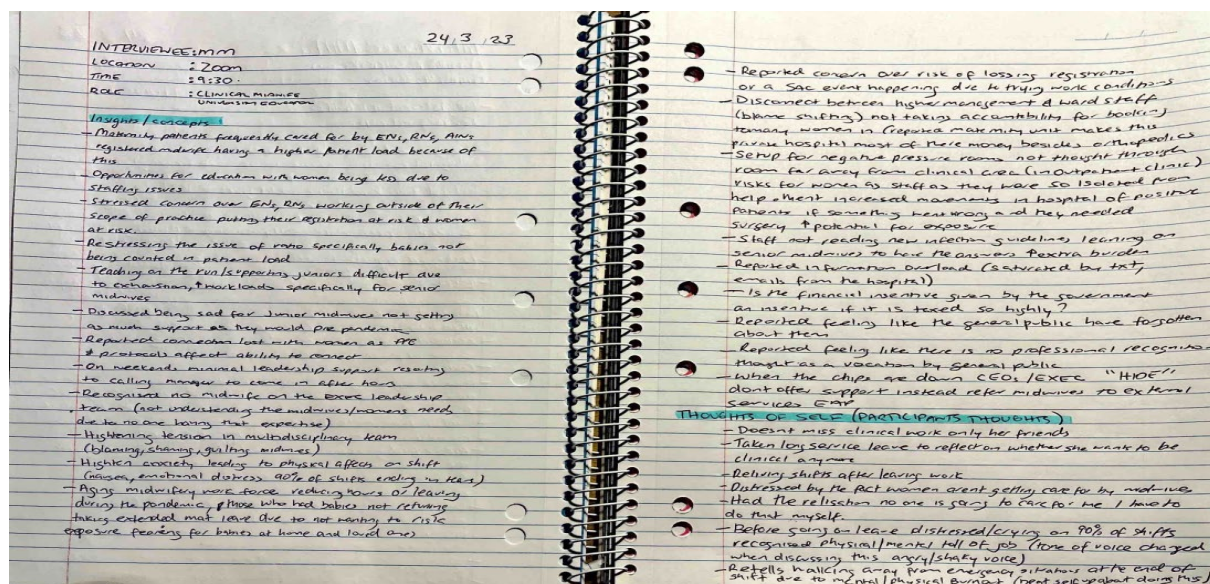 24/3/23
INTERVIEWEE: MM
LOCATION : ZOOM
TIME : 9:30.
ROLE : CLINICAL MIDWIFE
UNIVERSITY EDUCATOR
Insights/concepts :
- Maternity patients frequently cared for by ENs, RNs, AINs
registered midwife having a higher patient load because of
this
- Opportunities for education with women being less due to
staffing issues
- Stressed concern over ENs, RNs working outside of their
scope of practice putting their registration at risk & women
at risk.
- Restressing the issue of ratio specifically babies not
being counted in patient load
- Teaching on the run/supporting juniors difficult due
to exhaustion, ↑ workloads specifically for senior
midwives
- Discussed being sad for Junior midwives not getting
as much support as they would pre pandemic
- Reported connection lost with women as PPE
& protocols affect ability to connect
- On weekends minimal leadership support resorting
to calling manager to come in after hours
- Recognised no midwife on the exec leadership
team (not understanding the midwives/womens needs
due to no one having that expertise)
- Hightening tension in multidisciplinary team
(blaming, shaming, guilting midwives)
- Highten anxiety leading to physical affects on shift
(nausea, emotional distress 90% of shifts ending in tears)
- Aging midwifery work force reducing hours or leaving
during the pandemic, & those who had babies not returning
taking extended mat leave due to not wanting to risk
exposure fearing for babies at home and loved ones
- Reported concern over risk of lossing registration
or a Sac event happening due to trying work conditions
- Disconnect between higher management & ward staff
(blame shifting) not taking accountibility for booking
to many women in (reported maternity unit makes this
private hospital most of there money besides orthopedics
- Setup for negative pressure rooms not thought through
room far away from clinical area (in Outpatient clinic)
risks for women as staff as they were so isolated from
help. ment increased movements in hospital of positive
patients if something went wrong and they needed
surgery ↑ potential for exposure
- Staff not reading new infection guidelines leaning on
senior midwives to have the answers ↑ extra burden
- Reported information overload (saturated by txt,
emails from the hospital)
- Is the financial insentive given by the government
an insentive if it is taxed so highly?
- Reported feeling like the general public have forgotten
about them
- Reported feeling like there is no professional recognition
thought as a vocation by general public
- When the chips are down CEOs/EXEC "HIDE"
dont offer support instead refer midwives to external
services EAP
THOUGHTS OF SELF (PARTICIPANTS THOUGHTS)
- Doesnt miss clinical work only her friends
- Taken long service leave to reflect on whether she want to be
clinical anymore
- Reliving shifts after leaving work
- Distressed by the fact women arent getting care for by midwives
- Had the relisation no one is going to care for me I have to
do that myself.
- Before going on leave distressed/crying on 90% of shifts
recognised physical/mental toll of job (tone of voice changed
when discussing this angry/shaky voice)
- Retells walking away from emergency situations at the end of
shift due to mental/physical burnout (beat self up about doing this)